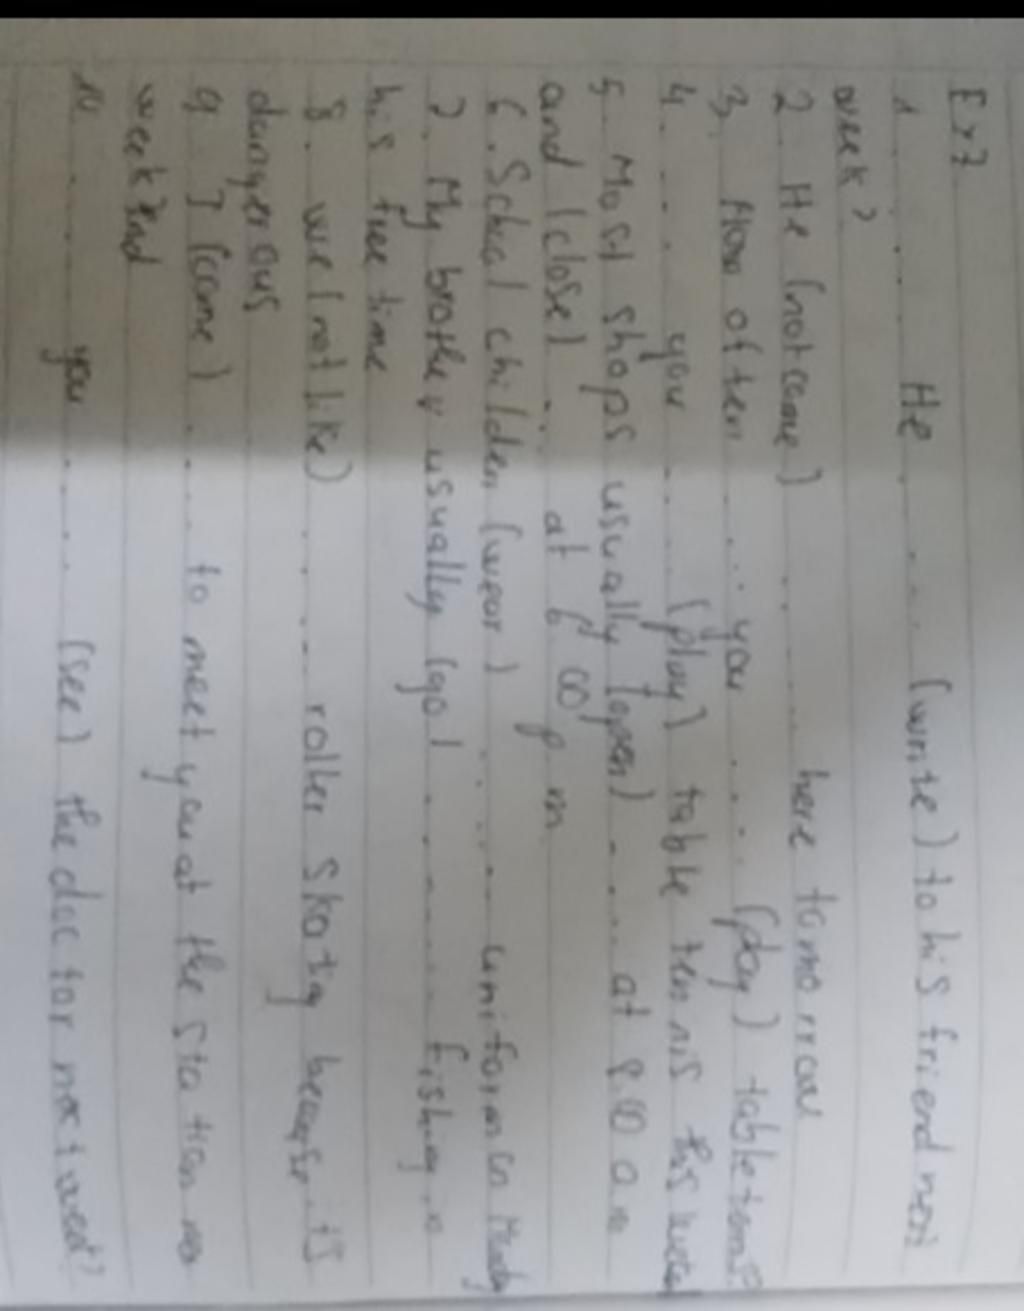 Ex2
1 ........ He ........ (write) to his friend next
week?
2 He (not come) ........ here tomorrow
3. How often ..... you ...... (play) table
4 ..... you ..... (play) table tennis this
5. Most shops usually (open) ..... at 8.00 am
and (close) ..... at 6 00 p m
6. School childen (wear) ........ uniform on
7. My brother usually (go) ........ fishing in
his free time
8. we (not like) ........ roller skatig because it's
dangerous
9 I (come) ..... to meet you at the
weekend
10 ...... you ...... (see) the doctor next week?